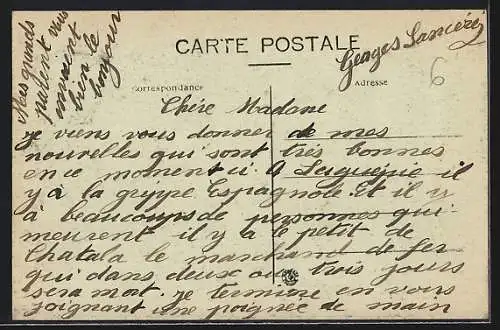 CARTE POSTALE
Correspondance
Adresse
6
Mes grands
parent vous
envoient
bien le
bonjour
Georges
Chère Madame
je viens vous donner de mes
nouvelles qui sont très bonnes
en ce moment ici. A il
y a la gryppe Espagnole. Et il y
à beaucoups de personnes qui
meurent il y a le petit de
Chatala le marchand de fer
qui dans deux ou trois jours
sera mort. je termine en vous
joignant une poignée de main